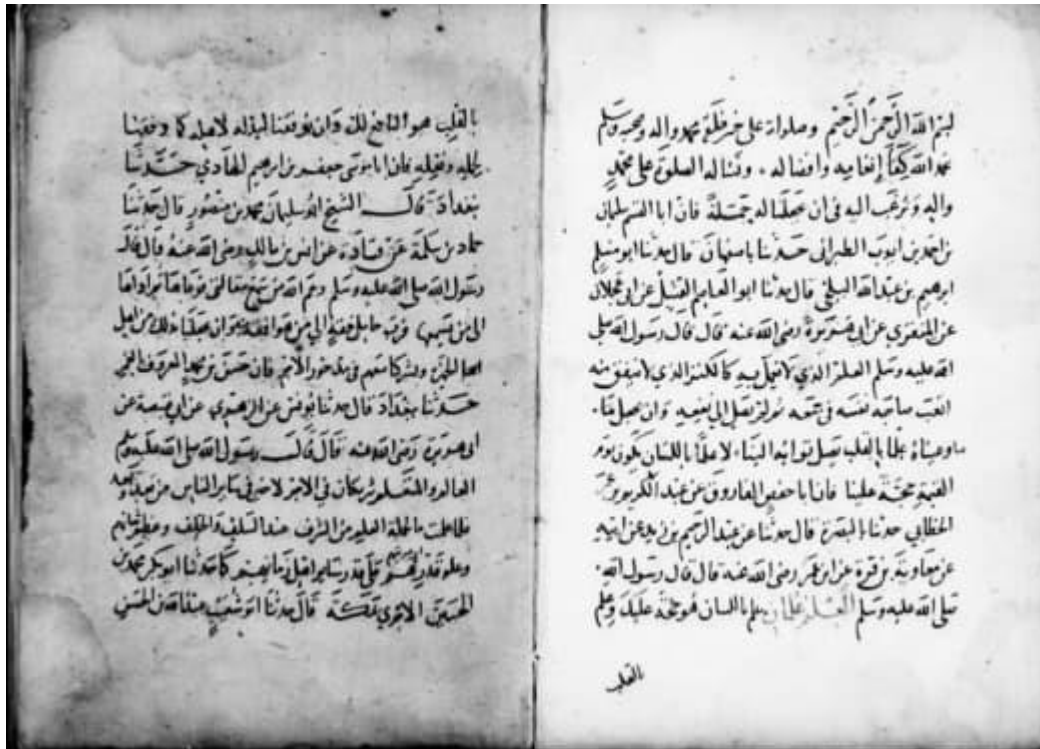 بسم الله الرحمن الرحيم وصلواته على خير خلقه محمد واله وصحبه وسلم
نحمد الله كفاء إنعامه وافضاله ونساله الصلوة على محمد
واله ونرغب اليه في ان يجعلنا له فان ابا القسم
بن احمد بن ايوب الطبراني حدثنا باصبهان قال حدثنا ابو مسلم
ابرهيم بن عبد الله قال حدثنا ابو عن ابن عجلان
عن المقبري عن ابي هريرة رضى الله عنه قال قال رسول الله صلى
الله عليه وسلم العلم الذي لا يعمل به كالكنز الذي لا ينفق منه
اتعب صاحبه نفسه في جمعه ثم لم يصل الى نفعه وان يجعل ما
وعيناه علما بالقلب يصل ثوابه الينا لا علما باللسان يكون يوم
القيمة حجة علينا فان ابا حفص الفاروق بن عبد الكريم بن
الخطابي حدثنا بالبصرة قال حدثنا عن عبد الرحيم بن زيد عن ابيه
عن معاوية بن قرة عن ابن عمر رضى الله عنه قال قال رسول الله
صلى الله عليه وسلم العلم علمان علم باللسان فهو حجة عليك وعلم
بالقلب
بالقلب فهو النافع لك وان يوفقنا لبذله لاهله كما وفقنا
لحمله ونقله فان ابا موسى جعفر بن ابرهيم حدثنا
ببغداد قال الشيخ ابو سليمان محمد بن منصور قال حدثنا
حماد بن سلمة عن قتادة عن انس بن مالك رضى الله عنه قال قال
رسول الله صلى الله عليه وسلم رحم الله من سمع مقالتي فوعاها ثم اداها
الى من يسمعها فرب حامل فقه الى من هو افقه منه وان يجعلنا بذلك من اهل
الخير ويشركنا معهم في الاجر فان حسن بن محمد المعروف
حدثنا ببغداد قال حدثنا يونس عن الزهري عن عن
ابى هريرة رضى الله عنه قال قال رسول الله صلى الله عليه وسلم
العالم والمتعلم شريكان في الاجر لا خير في سائر الناس من بعد
فلما علمت ما لحملة العلم من الشرف عند السلف والخلف وعظم شانهم
وعلو قدرهم على كما حدثنا ابو بكر محمد بن
الحسين الاجري بمكة قال حدثنا ابو شعيب بن الحسن